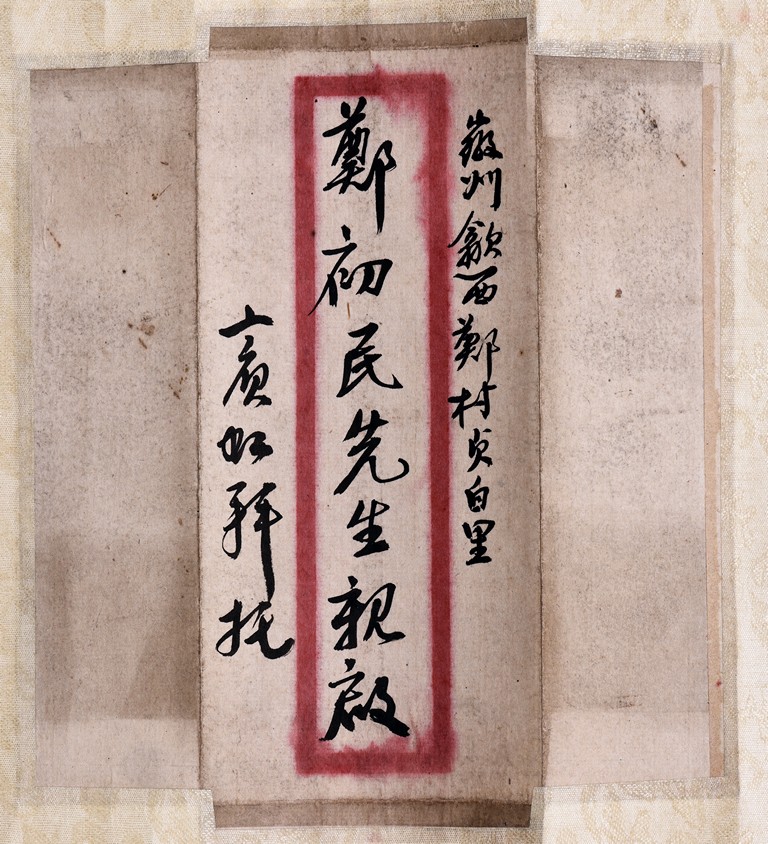 徽州歙西鄭村貞白里
鄭初民先生親啟
上賓虹拜托